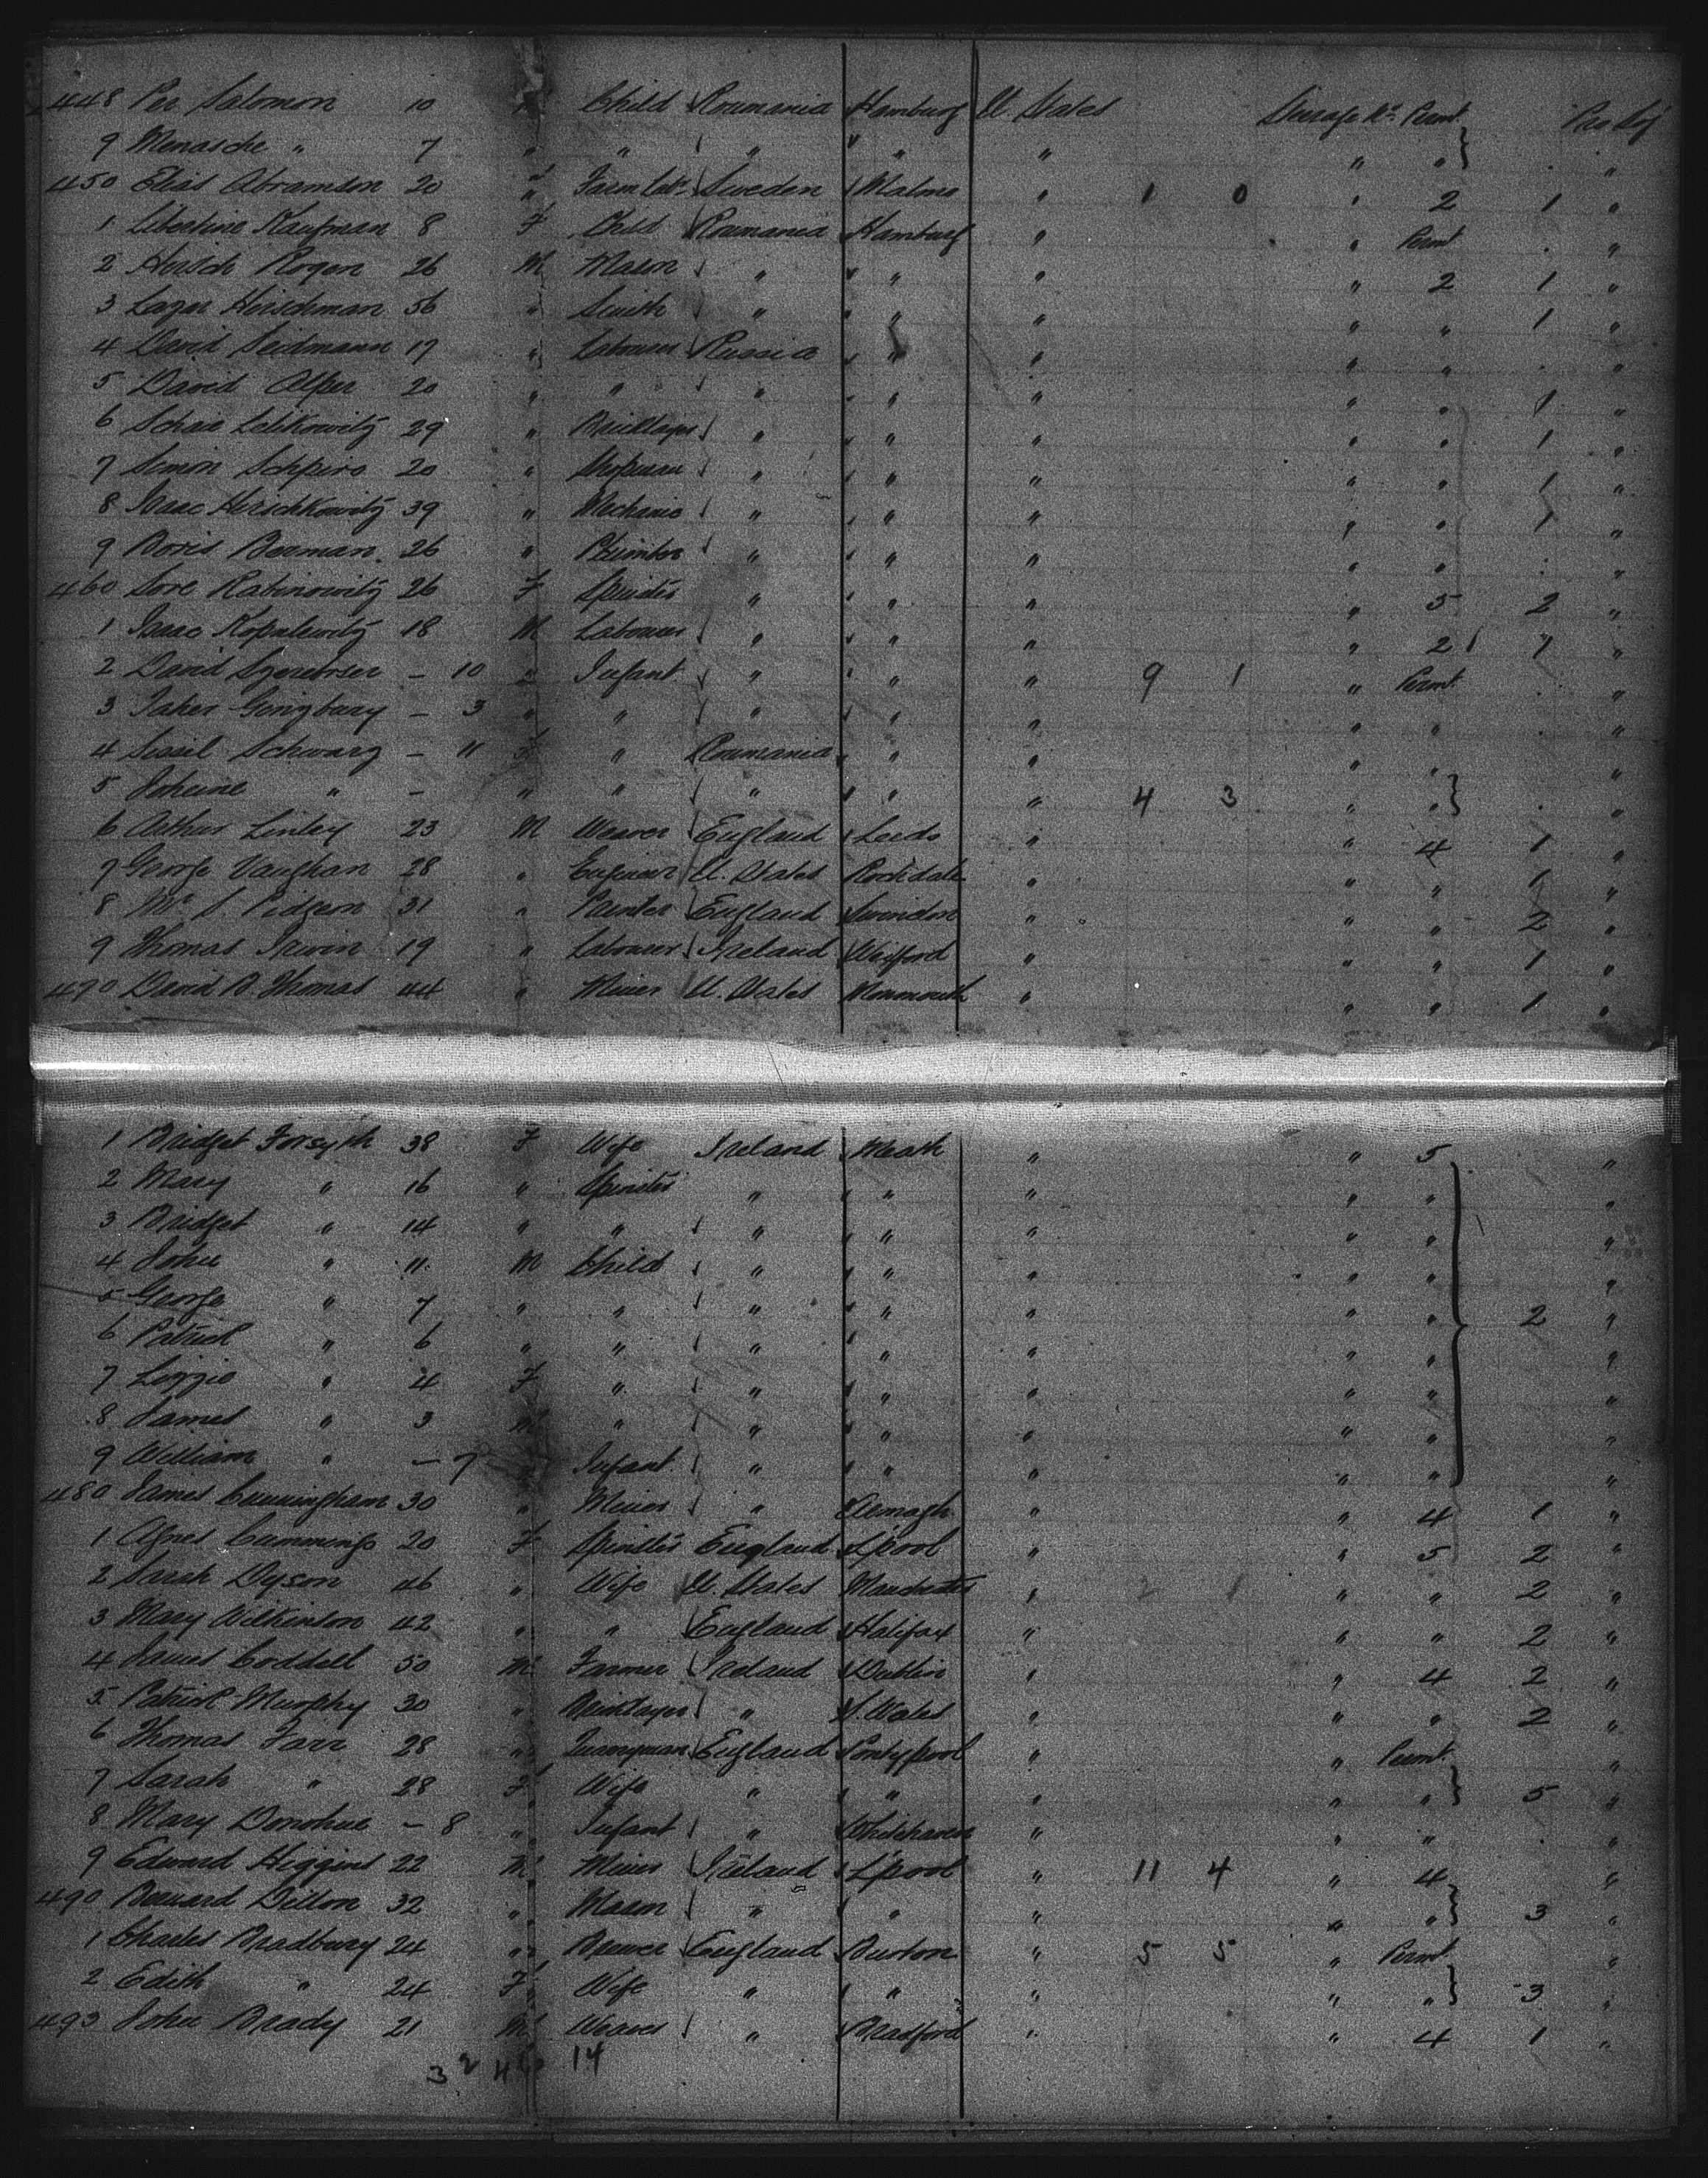 448 Per Salomon 10 Child Roumania Hamburg U. States Steerage Permt
9 Menasche " 7 " " " " " " "
450 Elias Abramson 20 " Farm Labr Sweden Malmo " 1 0 " 2 1 "
1 Libertine Kaufman 8 F Child Roumania Hamburg " " Permt "
2 Hersch Rogen 26 M Mason " " " " 2 1 "
3 Lazer Hirschman 56 " Smith " " " " " 1 "
4 David Seidmann 17 " Labourer Russia " " " " "
5 David Alper 20 " " " " " " " 1 "
6 29 " " " " " " 1 "
7 Simon Schpiro 20 " Shopman " " " " " 1 "
8 Isaac Herschkowitz 39 " Mechanic " " " " " 1 "
9 Boris Berman 26 " Plumber " " " " " "
460 Sore Rabinowitz 26 F Spinster " " " " 5 2 "
1 Isaac 18 M Labourer " " " " 2 1 "
2 David - 10 " Infant " " " 9 1 " Permt "
3 - 3 " " " " " " " "
4 Schwarz - 11 F " Roumania " " " " "
5 " - " " " " " 4 3 " " "
6 Arthur Linley 23 M Weaver England Leeds " " 4 1 "
7 George Vaughan 28 " Engineer U. States Rochdale " " " 1 "
8 Mr S. Pidgeon 31 " England Swindon " " " 2 "
9 Thomas Irwin 19 " Labourer Ireland Wexford " " " 1 "
470 David B. Thomas 44 " Miner U. States Monmouth " " " 1 "
1 Bridget Forsyth 38 F Wife Ireland Meath " " 5 "
2 Mary " 16 " Spinster " " " " " "
3 Bridget " 14 " " " " " " " "
4 John " 11 M Child " " " " " "
5 George " 7 " " " " " " " 2 "
6 Patrick " 6 " " " " " " " "
7 Lizzie " 4 F " " " " " " "
8 James " 3 M " " " " " " "
9 William " - 7 " Infant " " " " " "
480 James Cunningham 30 " Miner " Armagh " " 4 1 "
1 Agnes Cummings 20 F Spinster England L'pool " " 5 2 "
2 Sarah Dyson 46 " Wife U. States Manchester " 2 1 " " 2 "
3 Mary Wilkinson 42 " " England Halifax " " " 2 "
4 James Coddell 50 M Farmer Ireland Dublin " " 4 2 "
5 Patrick Murphy 30 " Bricklayer " S. Wales " " " 2 "
6 Thomas Farr 28 " Quarryman England Pontypool " " Permt "
7 Sarah " 28 F Wife " " " " " 5 "
8 Mary Donohue - 8 " Infant " Whitehaven " " " "
9 Edward Higgins 22 M Miner Ireland L'pool " 11 4 " 4 "
490 Bernard Dillon 32 " Mason " " " " " 3 "
1 Charles Bradbury 24 " Brewer England Burton " 5 5 " Permt "
2 Edith " 24 F Wife " " " " " 3 "
493 John Brady 21 M Weaver " Bradford " " 4 1 "
14